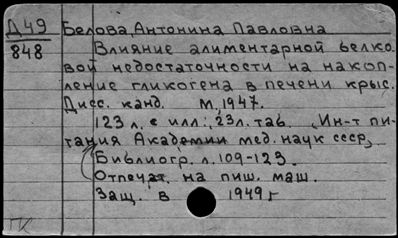 Д 49
848
Белова, Антонина Павловна
Влияние алиментарной белко-
вой недостаточности на накоп-
ление гликогена в печени крыс.
Дисс. канд. М, 1947.
123 л. с илл; 23 л. таб. (Ин-т пи-
тания Академии мед. наук СССР)
Библиогр. л. 109-123.
Отпечат. на пиш. маш.
Защ. в 1949 г
ГК